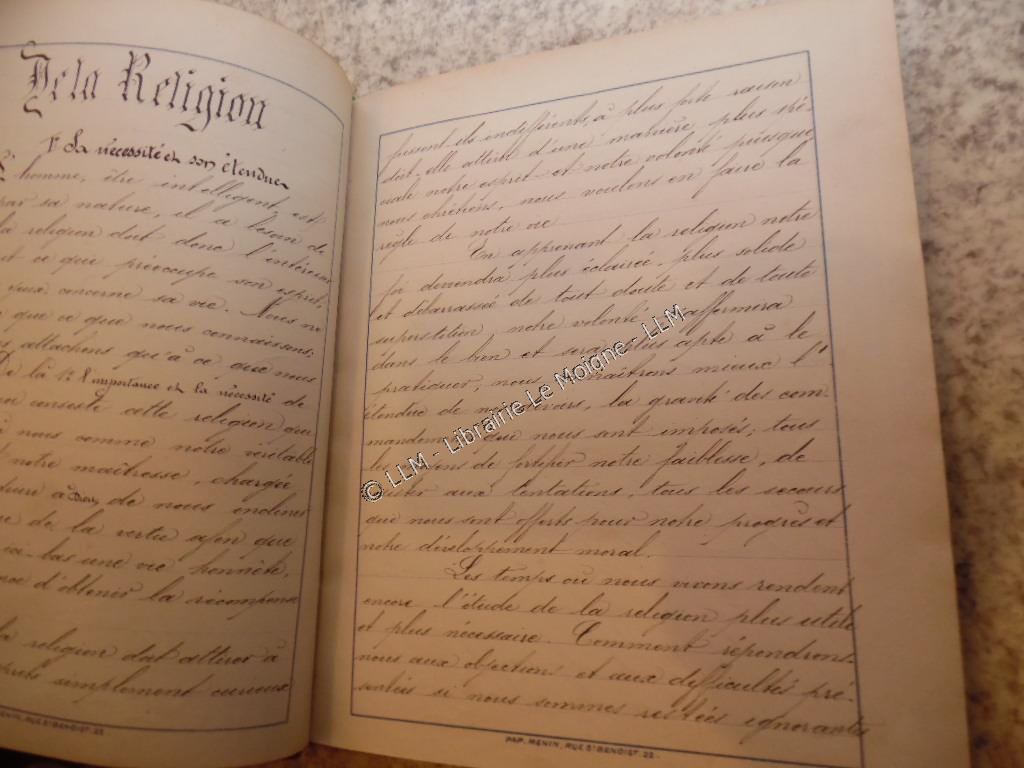 De la Religion
1º Sa nécessité et son étendue
homme, être intelligent, est
par sa nature, il a besoin de
la religion doit donc l'intéresser
ce qui préoccupe son esprit,
concerne sa vie. Nous ne
que ce que nous connaissons;
attachons qu'à ce que nous
De là l'importance et la nécessité de
consiste cette religion que
nous comme notre véritable
notre maîtresse, chargée
à Dieu, de nous incliner
de la vertu afin que
ici-bas une vie honnête,
d'obtenir la récompense
la religion doit attirer à
esprits simplement curieux
PAP. MENIN, RUE ST BENOIST. 22.
fussent-ils indifférents, à plus forte raison
doit-elle attirer d'une manière, plus spé-
ciale notre esprit et notre volonté puisque
nous chrétiens, nous voulons en faire la
règle de notre vie
En apprenant la religion notre
foi deviendra plus éclairée, plus solide
et débarrassée de tout doute et de toute
superstition, notre volonté s'affermira
dans le bien et sera plus apte à le
pratiquer, nous connaîtrons mieux l'
étendue de nos devoirs, la gravité des com-
mandements qui nous sont imposés; tous
les moyens de fortifier notre faiblesse, de
résister aux tentations, tous les secours
qui nous sont offerts pour notre progrès et
notre développement moral.
Les temps où nous vivons rendent
encore l'étude de la religion plus utile
et plus nécessaire. Comment répondrons-
nous aux objections et aux difficultés pré-
sentées si nous sommes restées ignorantes
PAP. MENIN, RUE ST BENOIST. 22.
© LLM - Librairie Le Moigne - LLM